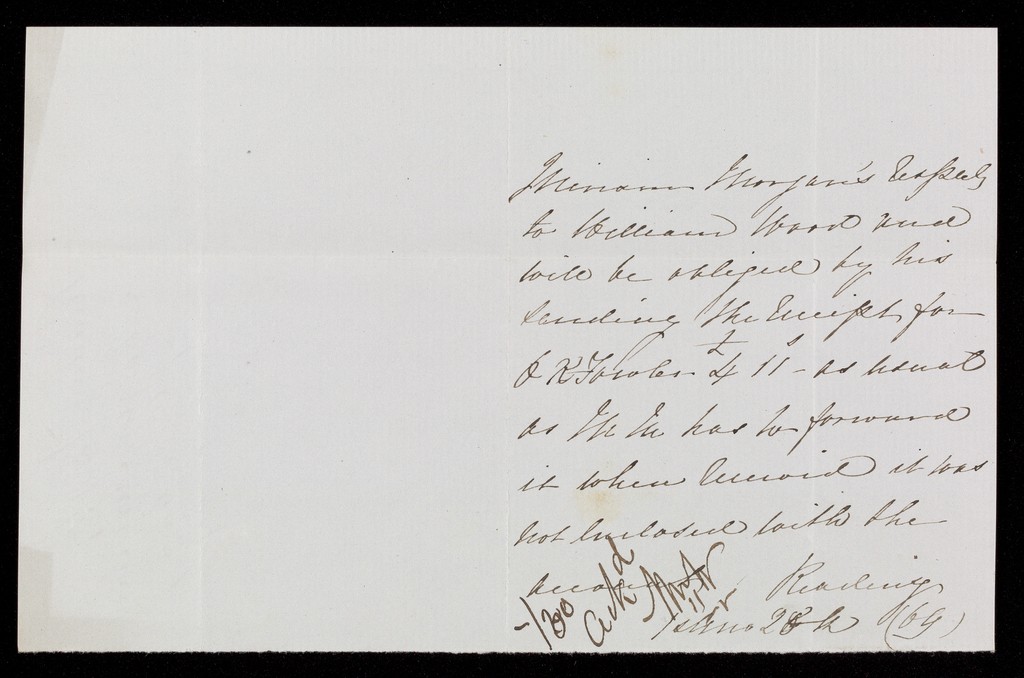 Miriam Morgan's respects
to William Wood and
will be obliged by his
sending the Receipt for
J K Fowler £4 11s - as usual
as M M has to forward
it when received it was
not Enclosed with the
Reading
1st mo 28th (69)
1/30
ackd